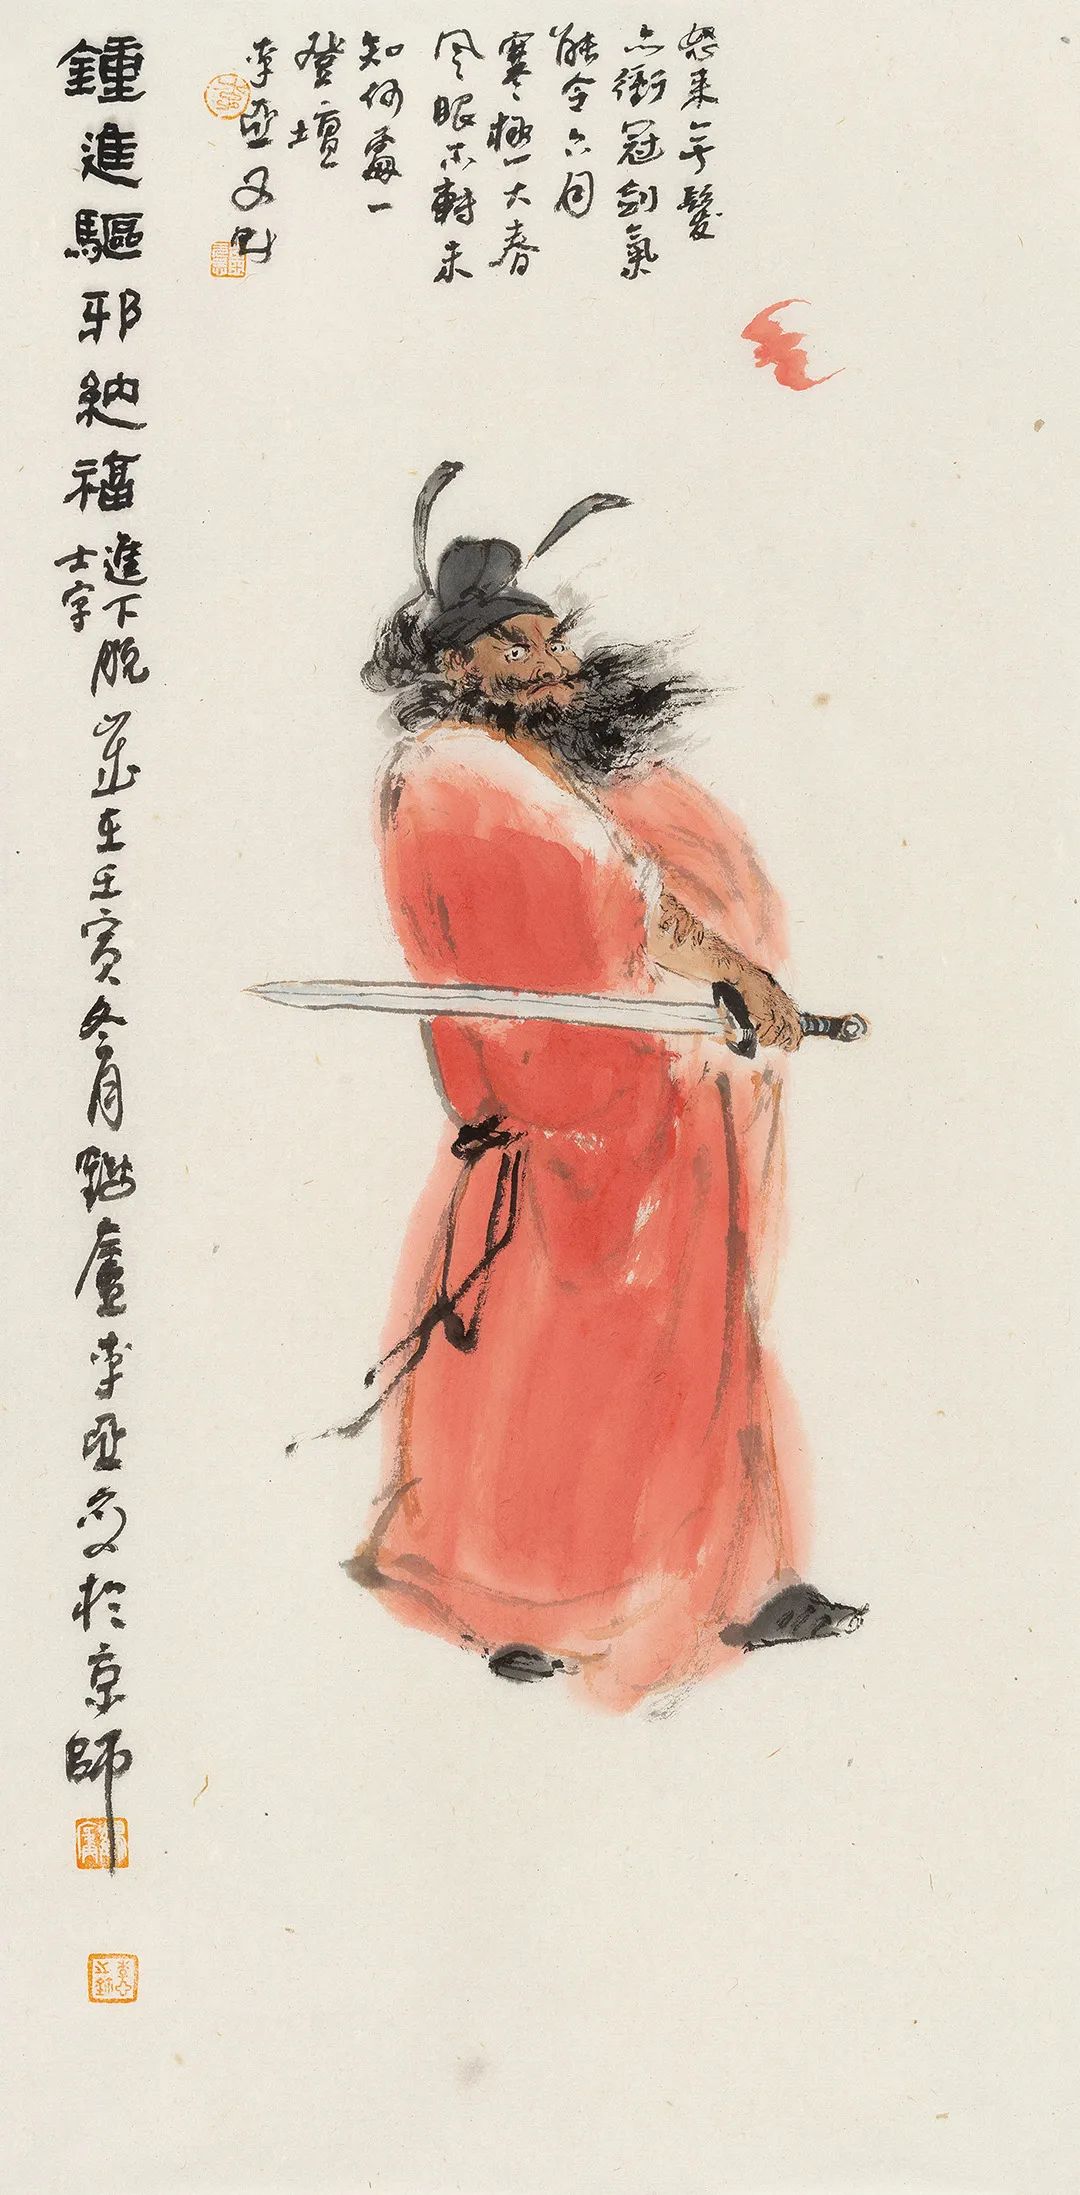 怒来无髮
亦衝冠劍氣
能令六月
寒極大春
風眼不轉未
知何處一
登壇
李亞又
鍾進驅邪納福
進下脫
士字
歲在壬寅冬月廬李亞於京師